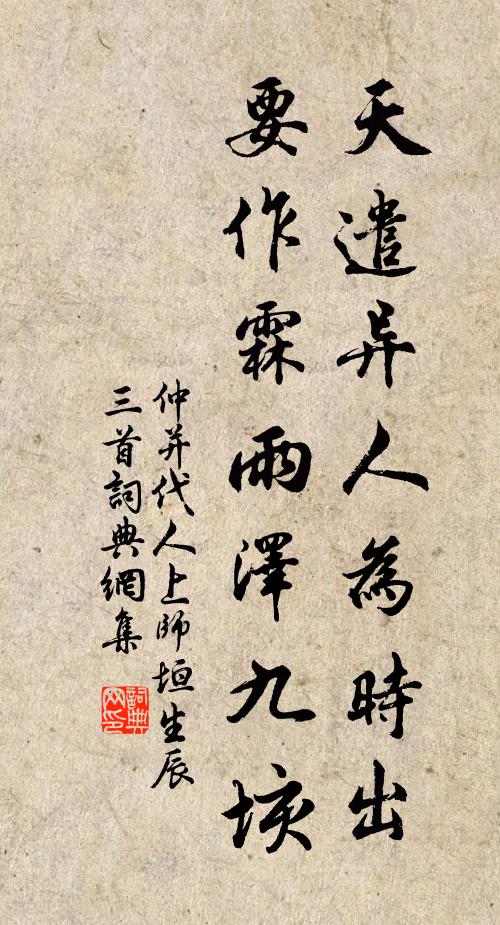 天遣异人為時出
要作霖雨澤九垓
仲并代人上師垣生辰
三首詞典網集
詞典网印